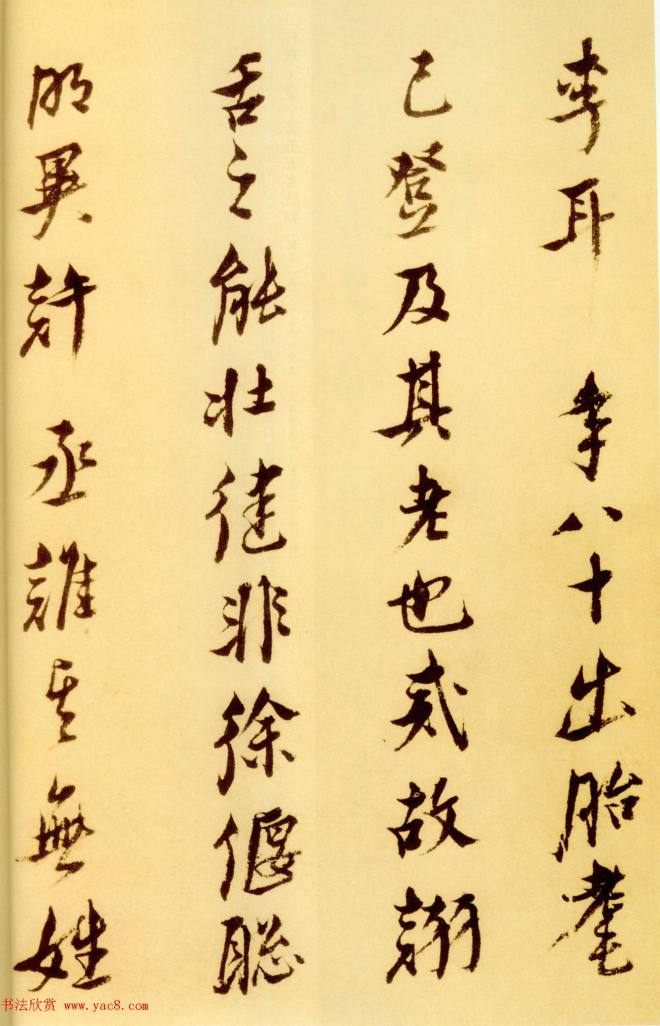 李耳 年八十出胎耄
已登及其老也哉故
舌之能壯徤非徐偃聡
明異許丞誰無姓
书法欣赏 www.yac8.com